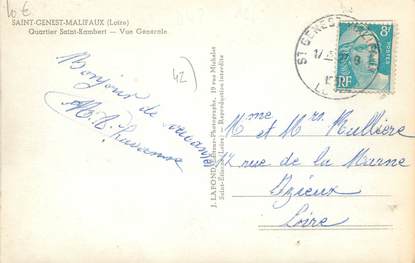 10 €
SAINT-GENEST-MALIFAUX (Loire)
Quartier Saint-Rambert — Vue Generale
42
Bonjour de
J. LAFOND, Editeur-Photographe, 19 rue Michelet
Saint-Etienne (Loire) - Reproduction interdite
ST GENEST-MALIFAUX
8F
POSTES
RF
Mme et Mrs Rullière
12 rue de la Marne
Izieux
Loire